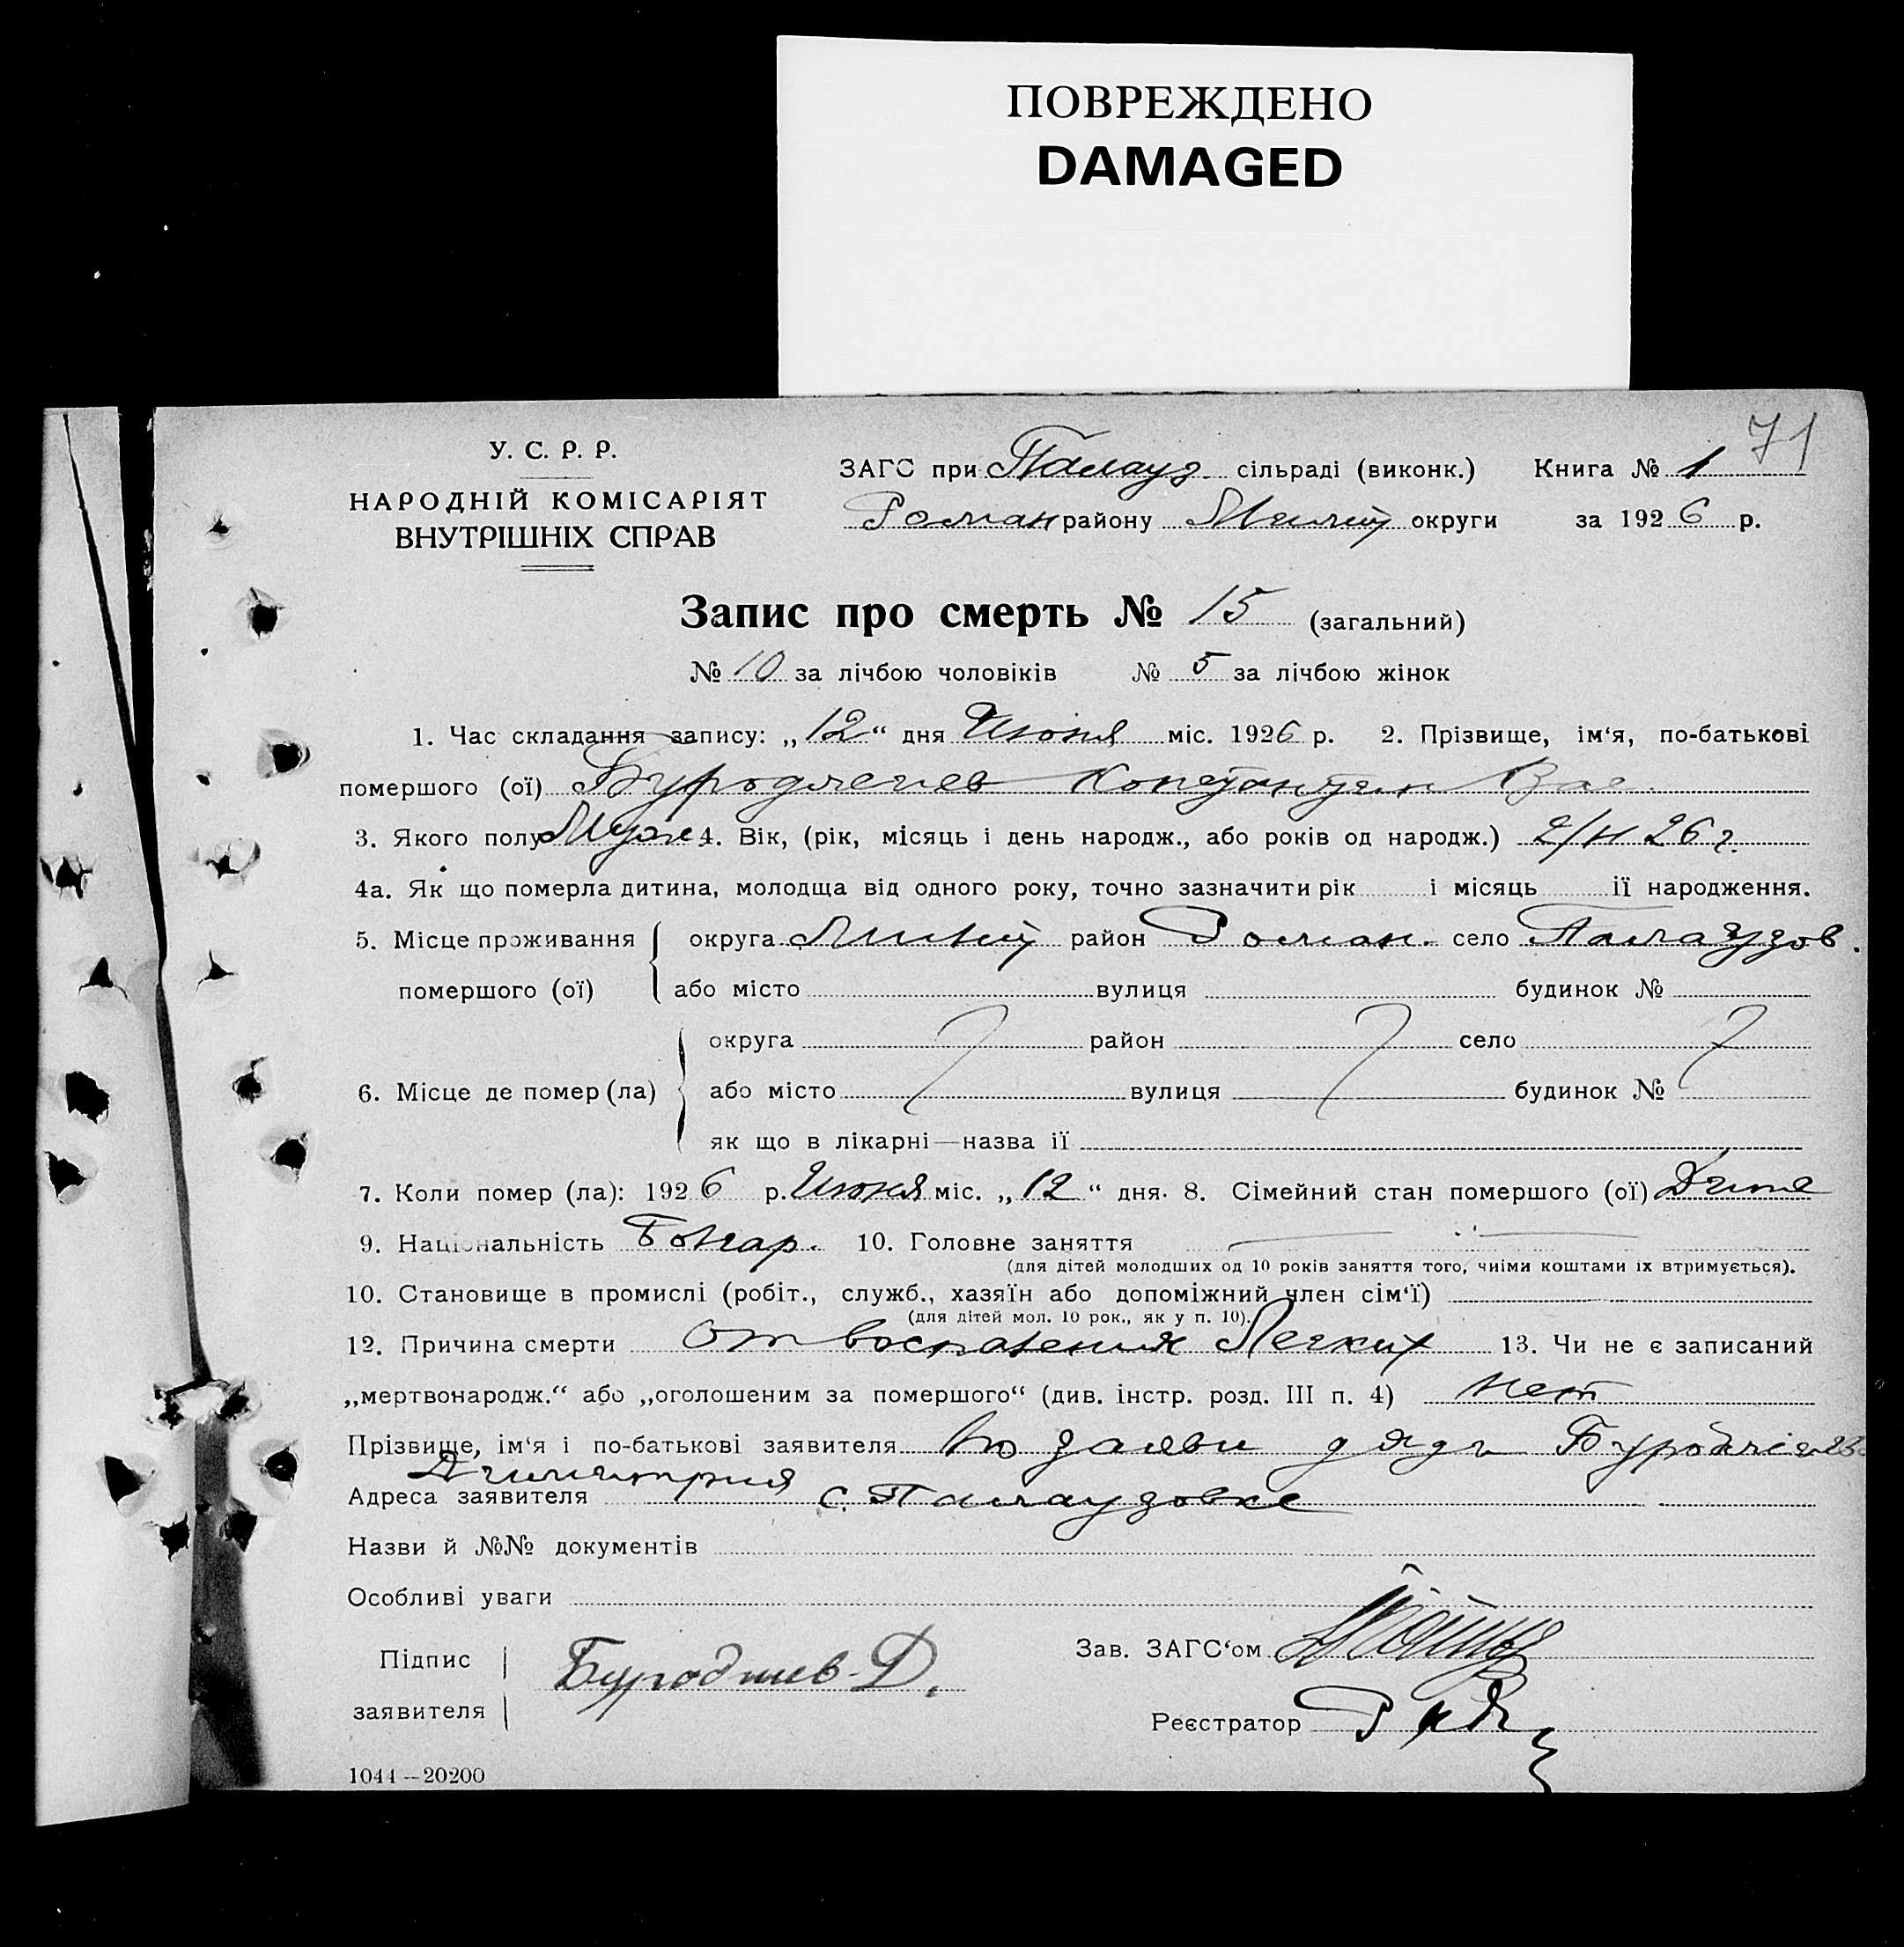 ПОВРЕЖДЕНО
DAMAGED
71
У. С. Р. Р.
НАРОДНІЙ КОМІСАРІЯТ
ВНУТРІШНІХ СПРАВ
ЗАГС при Палауз. сільраді (виконк.) Книга № 1
Роман району округи за 1926 р.
Запис про смерть № 15 (загальний)
№ 10 за лічбою чоловіків № 5 за лічбою жінок
1. Час складання запису: „12“ дня Июня міс. 1926 р. 2. Прізвище, ім‘я, по-батькові
помершого (ої) Константин Вас.
3. Якого полу Муж 4. Вік, (рік, місяць і день народж., або років од народж.) 26 г.
4а. Як що померла дитина, молодща від одного року, точно зазначити рік і місяць її народження.
5. Місце проживання округа район Роман. село Палаузов.
помершого (ої) або місто вулиця будинок №
округа район село
6. Місце де помер (ла) або місто вулиця будинок №
як що в лікарні—назва її
7. Коли помер (ла): 1926 р. Июня міс. „12“ дня. 8. Сімейний стан помершого (ої) Дитя
9. Національність Болгар. 10. Головне заняття
(для дітей молодших од 10 років заняття того, чиїми коштами їх втримується).
10. Становище в промислі (робіт., служб., хазяїн або допоміжний член сім‘ї)
(для дітей мол. 10 рок., як у п. 10).
12. Причина смерти От воспаления Легких 13. Чи не є записаний
„мертвонародж.“ або „оголошеним за помершого“ (див. інстр. розд. III п. 4) нет
Прізвище, ім‘я і по-батькові заявителя По заяви дядь
Димитрия
Адреса заявителя с. Палаузовке
Назви й №№ документів
Особливі уваги
Підпис Зав. ЗАГС‘ом
заявителя Реєстратор
1044—20200